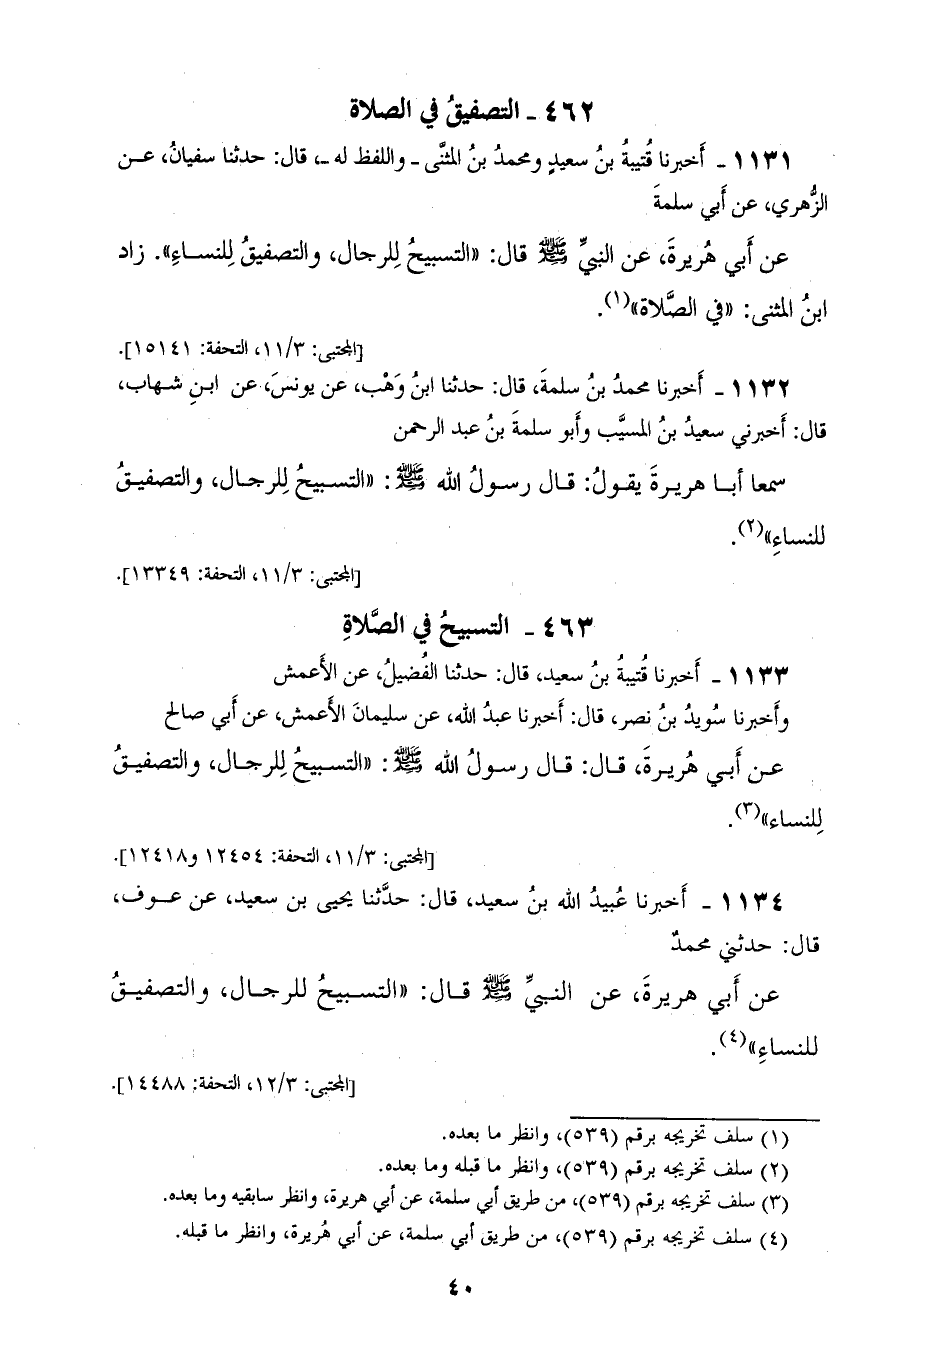 ٤٦٢ ـ التصفيقُ في الصلاة
١١٣١ ـ أَخبرنا قُتيبةُ بنُ سعيدٍ ومحمدُ بنُ المثنَّى ـ واللفظ له ـ، قال: حدثنا سفيانُ، عـن
الزُّهري، عن أَبي سلمةَ
عن أَبي هُريرةَ، عن النبيِّ ﷺ قال: «التسبيحُ لِلرجال، والتصفيقُ لِلنساءِ». زاد
ابنُ المثنى: «في الصَّلاة»(١).
[المجتبى: ١١/٣، التحفة: ١٥١٤١].
١١٣٢ ـ أَخبرنا محمدُ بنُ سلمةَ، قال: حدثنا ابنُ وَهْب، عن يونسَ، عن ابـنِ شـهاب،
قال: أَخبرني سعيدُ بنُ المسيَّب وأَبو سلمةَ بنُ عبد الرحمن
سمعا أبـا هريـرةَ يقـولُ: قـال رسـولُ الله ﷺ: «التسـبيحُ لِلرجـال، والتصفيـقُ
للنساءِ»(٢).
[المجتبى: ١١/٣، التحفة: ١٣٣٤٩].
٤٦٣ ـ التسبيحُ في الصَّلاةِ
١١٣٣ ـ أَخبرنا قُتيبةُ بنُ سعيد، قال: حدثنا الفُضيلُ، عن الأَعمش
وأَخبرنا سُويدُ بنُ نصر، قال: أَخبرنا عبدُ الله، عن سليمانَ الأَعمش، عن أَبي صالح
عـن أَبـي هُريـرةَ، قـال: قـال رسـولُ الله ﷺ: «التسـبيحُ لِلرجـال، والتصفيـقُ
لِلنساء»(٣).
[المجتبى: ١١/٣، التحفة: ١٢٤٥٤ و١٢٤١٨].
١١٣٤ ـ أَخبرنا عُبيدُ الله بنُ سعيد، قال: حدَّثنا يحيى بن سعيد، عن عـوف،
قال: حدثني محمدٌ
عن أَبي هريرةَ، عن النبـيِّ ﷺ قـال: «التسـبيحُ للرجـال، والتصفيـقُ
للنساءِ»(٤).
[المجتبى: ١٢/٣، التحفة: ١٤٤٨٨].
(١) سلف تخريجه برقم (٥٣٩)، وانظر ما بعده.
(٢) سلف تخريجه برقم (٥٣٩)، وانظر ما قبله وما بعده.
(٣) سلف تخريجه برقم (٥٣٩)، من طريق أبي سلمة، عن أبي هريرة، وانظر سابقيه وما بعده.
(٤) سلف تخريجه برقم (٥٣٩)، من طريق أبي سلمة، عن أبي هُريرة، وانظر ما قبله.
٤٠